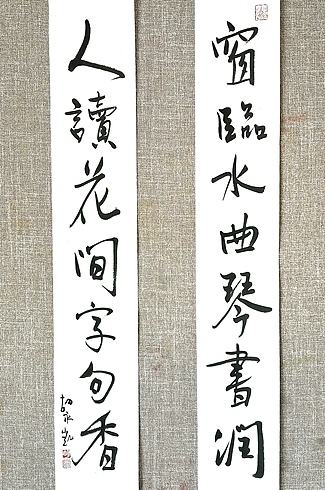 窗臨水曲琴書潤
人讀花間字句香